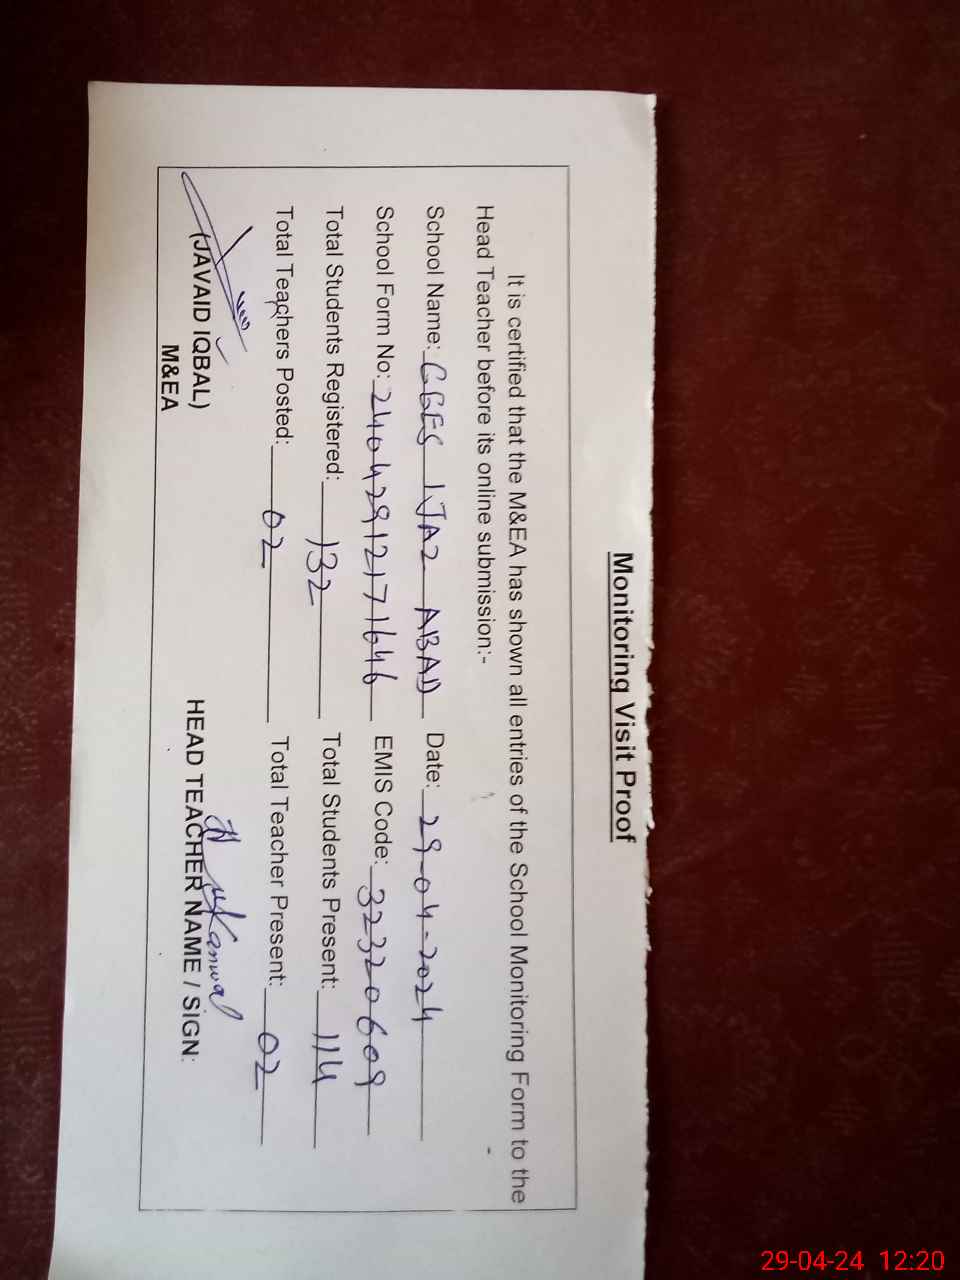 Monitoring Visit Proof
It is certified that the M&EA has shown all entries of the School Monitoring Form to the
Head Teacher before its online submission:-
School Name: GGES IJAZ ABAD Date: 29-04-2024
School Form No: 24042912171646 EMIS Code: 32320609
Total Students Registered: 132 Total Students Present: 114
Total Teachers Posted: 02 Total Teacher Present: 02
Kanwal
(JAVAID IQBAL) HEAD TEACHER NAME / SIGN:
M&EA
29-04-24 12:20